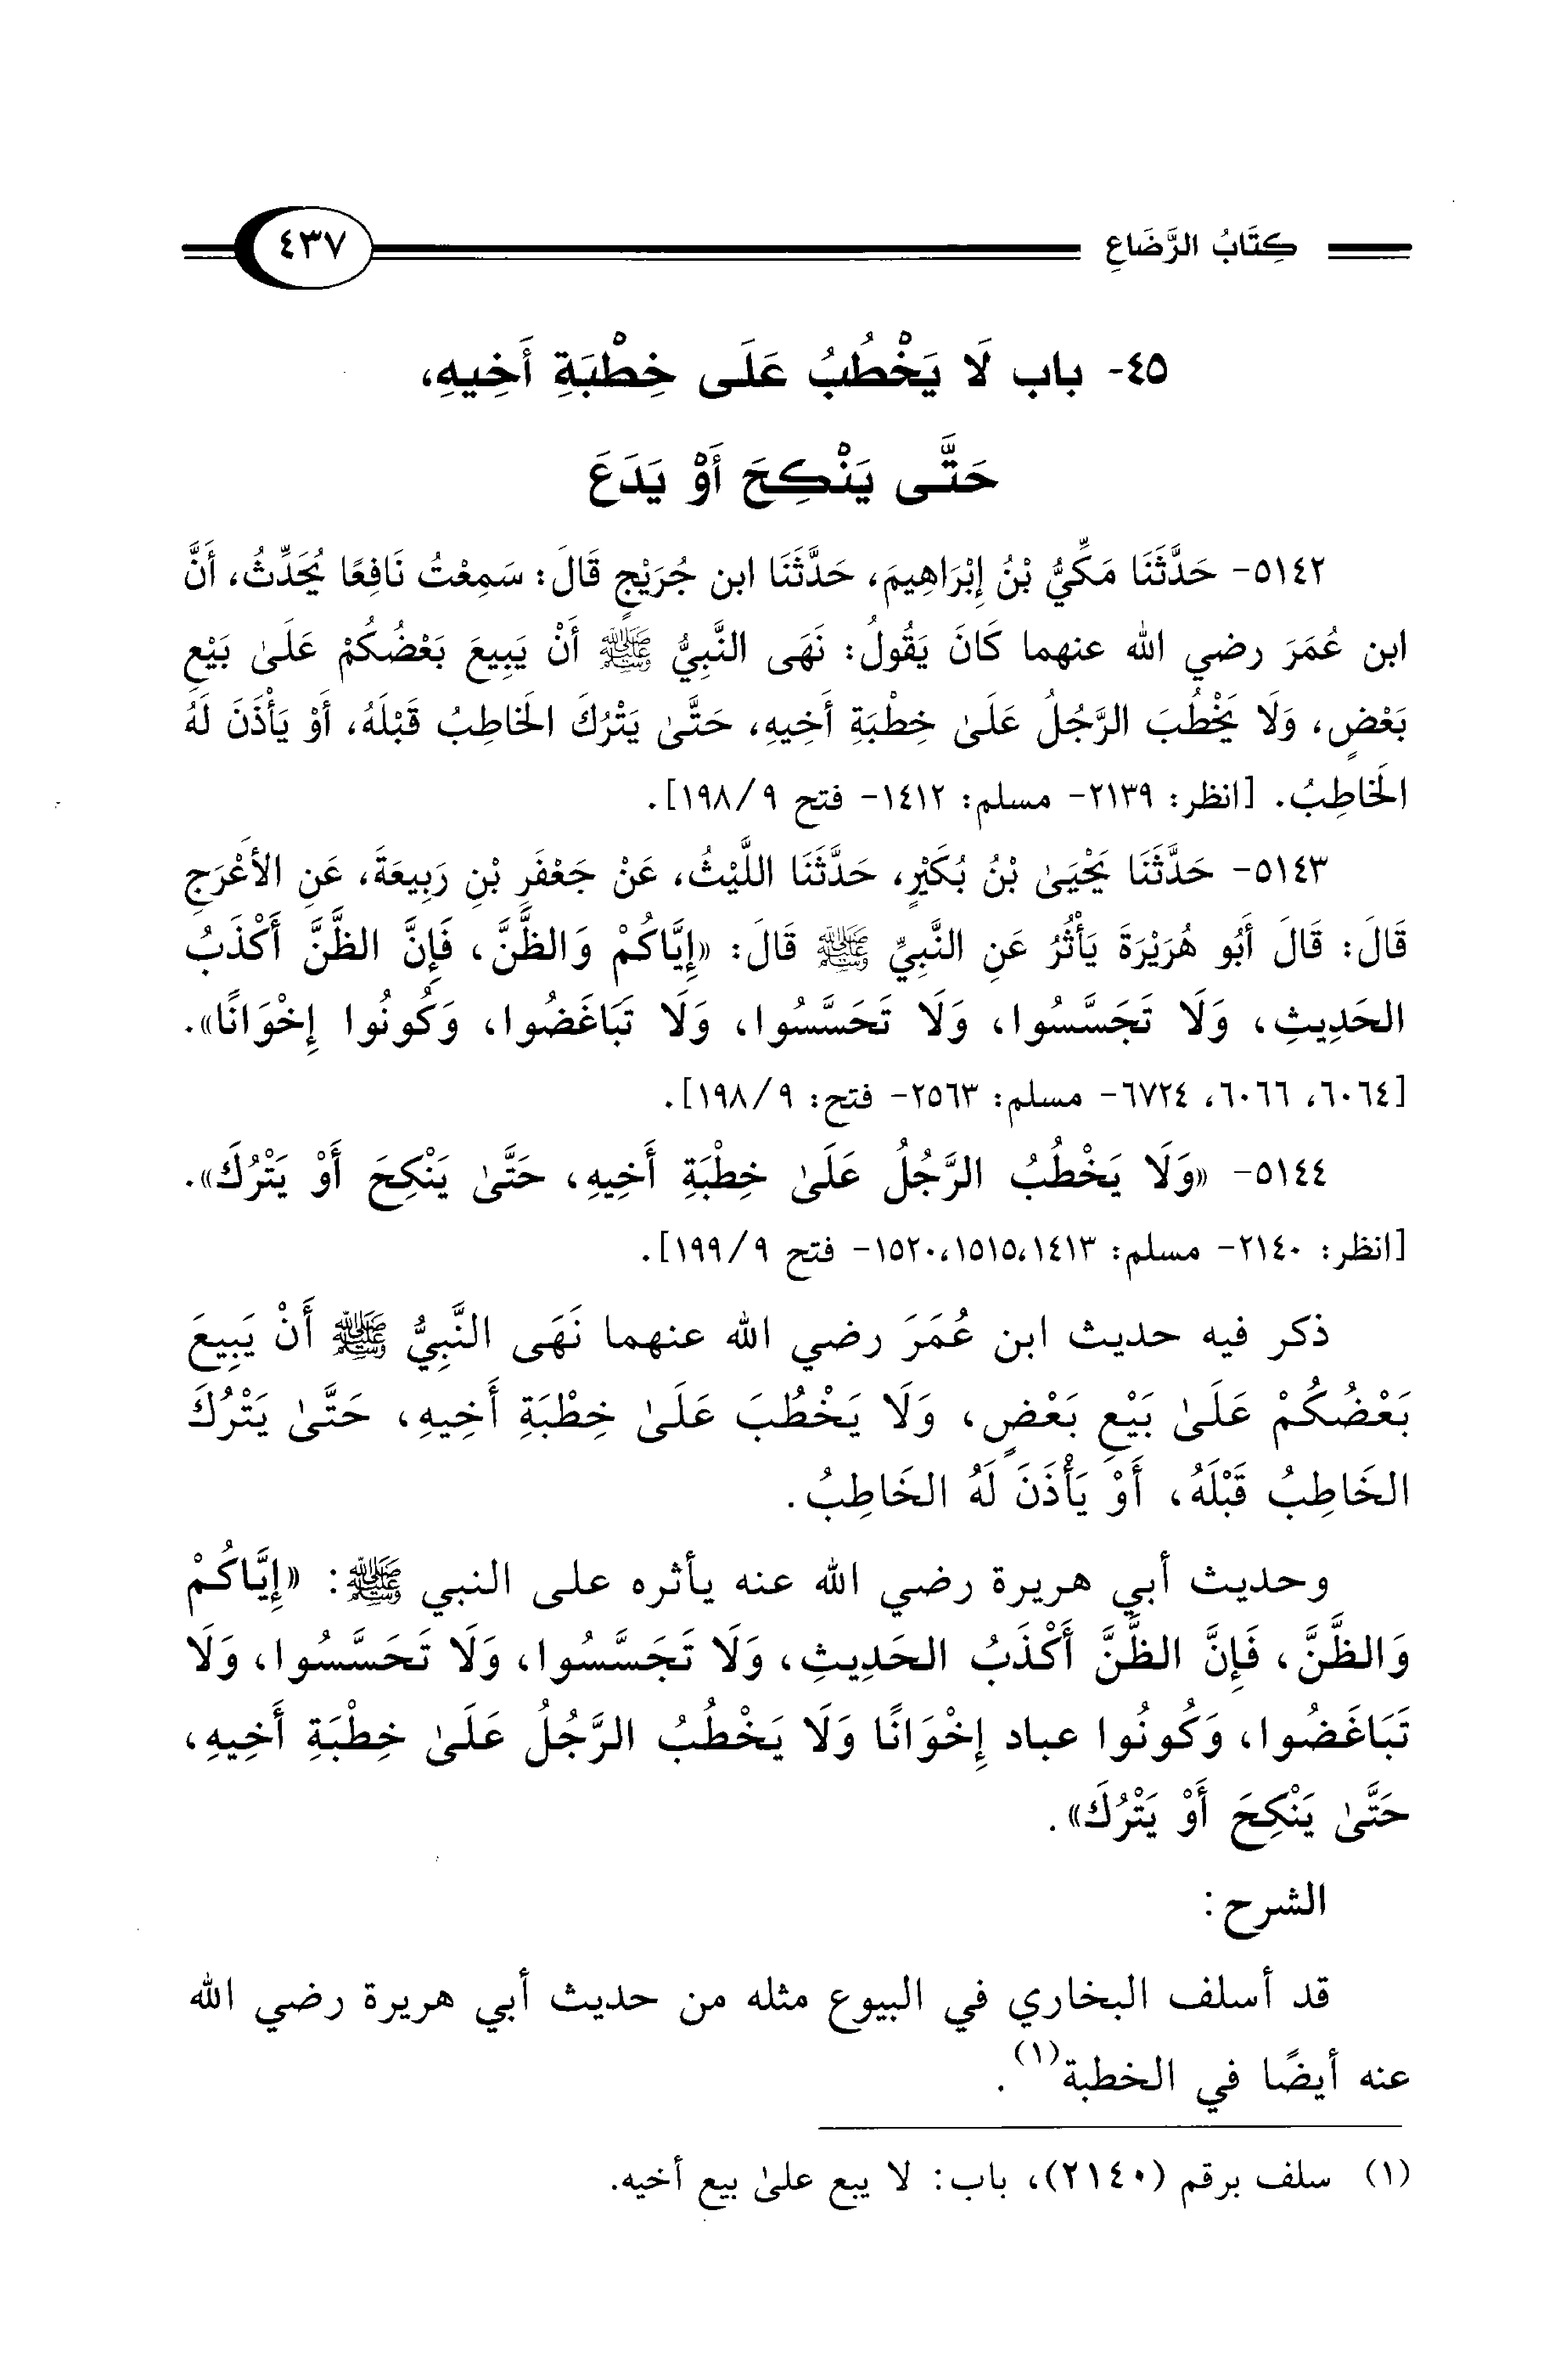 كِتَابُ الرَّضَاعِ ٤٣٧
٤٥- باب لَا يَخْطُبُ عَلَى خِطْبَةِ أَخِيهِ،
حَتَّى يَنْكِحَ أَوْ يَدَعَ
٥١٤٢- حَدَّثَنَا مَكِّيُّ بْنُ إِبْرَاهِيمَ، حَدَّثَنَا ابن جُرَيْجٍ قَالَ: سَمِعْتُ نَافِعًا يُحَدِّثُ، أَنَّ
ابن عُمَرَ رضي الله عنهما كَانَ يَقُولُ: نَهَى النَّبِيُّ ﷺ أَنْ يَبِيعَ بَعْضُكُمْ عَلَىٰ بَيْعِ
بَعْضٍ، وَلَا يَخْطُبَ الرَّجُلُ عَلَىٰ خِطْبَةِ أَخِيهِ، حَتَّىٰ يَتْرُكَ الخَاطِبُ قَبْلَهُ، أَوْ يَأْذَنَ لَهُ
الخَاطِبُ. [انظر: ٢١٣٩- مسلم: ١٤١٢- فتح ٩/ ١٩٨].
٥١٤٣- حَدَّثَنَا يَحْيَىٰ بْنُ بُكَيْرٍ، حَدَّثَنَا اللَّيْثُ، عَنْ جَعْفَرِ بْنِ رَبِيعَةَ، عَنِ الأَعْرَجِ
قَالَ: قَالَ أَبُو هُرَيْرَةَ يَأْثُرُ عَنِ النَّبِيِّ ﷺ قَالَ: «إِيَّاكُمْ وَالظَّنَّ، فَإِنَّ الظَّنَّ أَكْذَبُ
الحَدِيثِ، وَلَا تَجَسَّسُوا، وَلَا تَحَسَّسُوا، وَلَا تَبَاغَضُوا، وَكُونُوا إِخْوَانًا».
[٦٠٦٤، ٦٠٦٦، ٦٧٢٤- مسلم: ٢٥٦٣- فتح: ٩/ ١٩٨].
٥١٤٤- «وَلَا يَخْطُبُ الرَّجُلُ عَلَىٰ خِطْبَةِ أَخِيهِ، حَتَّىٰ يَنْكِحَ أَوْ يَتْرُكَ».
[انظر: ٢١٤٠- مسلم: ١٤١٣،١٥١٥،١٥٢٠- فتح ٩/ ١٩٩].
ذكر فيه حديث ابن عُمَرَ رضي الله عنهما نَهَى النَّبِيُّ ﷺ أَنْ يَبِيعَ
بَعْضُكُمْ عَلَىٰ بَيْعِ بَعْضٍ، وَلَا يَخْطُبَ عَلَىٰ خِطْبَةِ أَخِيهِ، حَتَّىٰ يَتْرُكَ
الخَاطِبُ قَبْلَهُ، أَوْ يَأْذَنَ لَهُ الخَاطِبُ.
وحديث أبي هريرة رضي الله عنه يأثره على النبي ﷺ: «إِيَّاكُمْ
وَالظَّنَّ، فَإِنَّ الظَّنَّ أَكْذَبُ الحَدِيثِ، وَلَا تَجَسَّسُوا، وَلَا تَحَسَّسُوا، وَلَا
تَبَاغَضُوا، وَكُونُوا عباد إِخْوَانًا وَلَا يَخْطُبُ الرَّجُلُ عَلَىٰ خِطْبَةِ أَخِيهِ،
حَتَّىٰ يَنْكِحَ أَوْ يَتْرُكَ».
الشرح:
قد أسلف البخاري في البيوع مثله من حديث أبي هريرة رضي الله
عنه أيضًا في الخطبة(١).
(١) سلف برقم (٢١٤٠)، باب: لا يبع علىٰ بيع أخيه.